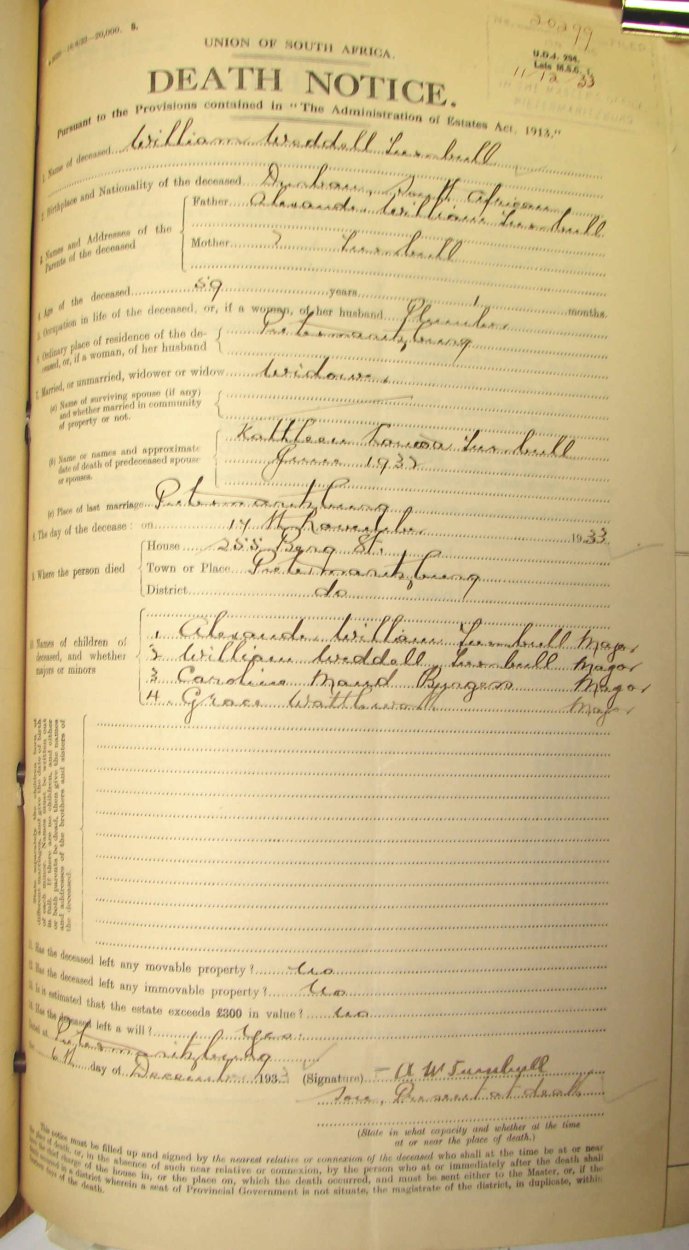 20299
U.D.J. 294.
Late M.S.C. 1.
11/12 33
UNION OF SOUTH AFRICA.
DEATH NOTICE.
Pursuant to the Provisions contained in "The Administration of Estates Act, 1913."
1. Name of deceased William Weddell Turnbull
2. Birthplace and Nationality of the deceased Durban, South African
3. Names and Addresses of the Parents of the deceased
Father Alexander William Turnbull
Mother ? Turnbull
4. Age of the deceased 59 years 1 months
5. Occupation in life of the deceased, or, if a woman, of her husband Plumber
6. Ordinary place of residence of the deceased, or, if a woman, of her husband
Pietermaritzburg
7. Married, or unmarried, widower or widow Widower
(a) Name of surviving spouse (if any)
and whether married in community
of property or not.
(b) Name or names and approximate
date of death of predeceased spouse
or spouses.
Kathleen Turnbull
June 1932
(c) Place of last marriage Pietermaritzburg
8. The day of the decease: on 17th November 1933
9. Where the person died
House 255 Berg St.
Town or Place Pietermaritzburg
District do
10. Names of children of
deceased, and whether
majors or minors
1 Alexander William Turnbull Major
2 William Weddell Turnbull Major
3 Caroline Maud Burgess Major
4 Grace Major
State separately the children by
different marriages, and give the date of birth
of each minor. Names must be written out
in full. If there are no children, and either
or both parents be dead, then give the names
and addresses of the brothers and sisters of
the deceased.
11. Has the deceased left any movable property? no
12. Has the deceased left any immovable property? No
13. Is it estimated that the estate exceeds £300 in value? no
14. Has the deceased left a will? Yes.
Dated at Pietermaritzburg
the 6th day of December 1933 (Signature) A W Turnbull
Son, Present at death
(State in what capacity and whether at the time
at or near the place of death.)
This notice must be filled up and signed by the nearest relative or connexion of the deceased who shall at the time be at or near
the place of death, or, in the absence of such near relative or connexion, by the person who at or immediately after the death shall
have the chief charge of the house in, or the place on, which the death occurred, and must be sent either to the Master, or, if the
death occurred in a district wherein a seat of Provincial Government is not situate, the magistrate of the district, in duplicate, within
fourteen days of the death.